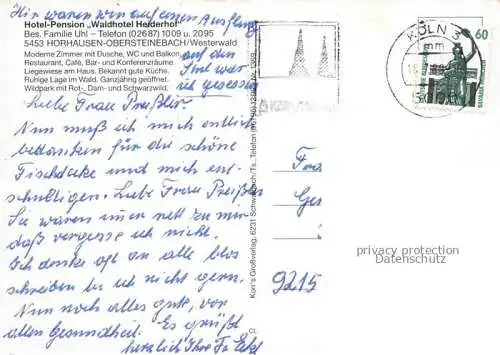 Wir waren wir auf einen Ausflug
Hotel-Pension „Waldhotel Heiderhof"
Bes. Familie Uhl – Telefon (02687) 1009 u. 2095
5453 HORHAUSEN-OBERSTEINEBACH/Westerwald
Moderne Zimmer mit Dusche, WC und Balkon,
Restaurant, Café, Bar- und Konferenzräume
Liegewiese am Haus. Bekannt gute Küche.
Ruhige Lage im Wald. Ganzjährig geöffnet.
Wildpark mit Rot-, Dam- und Schwarzwild.
auf den
war
ich gesessen
Liebe Frau Preißler.
Nun muß ich mich entlich
bedanken für die schöne
Tischdecke und mich ent-
schuldigen. Liebe Frau Preißler
Sie waren imer nett zu mir
daß vergesse ich nicht.
Ich denke oft an alle blos
schreiben tu ich nicht gern.
Nun noch alles gute, vor
allem Gesundheit. Es grüßt
herzlich Ihre Fr.
Korr's Großverlag, 6231 Schwalbach/Ts., Telefon
CL
KÖLN 3
mm
5000
60
Fra
Ges
9215
privacy protection
Datenschutz